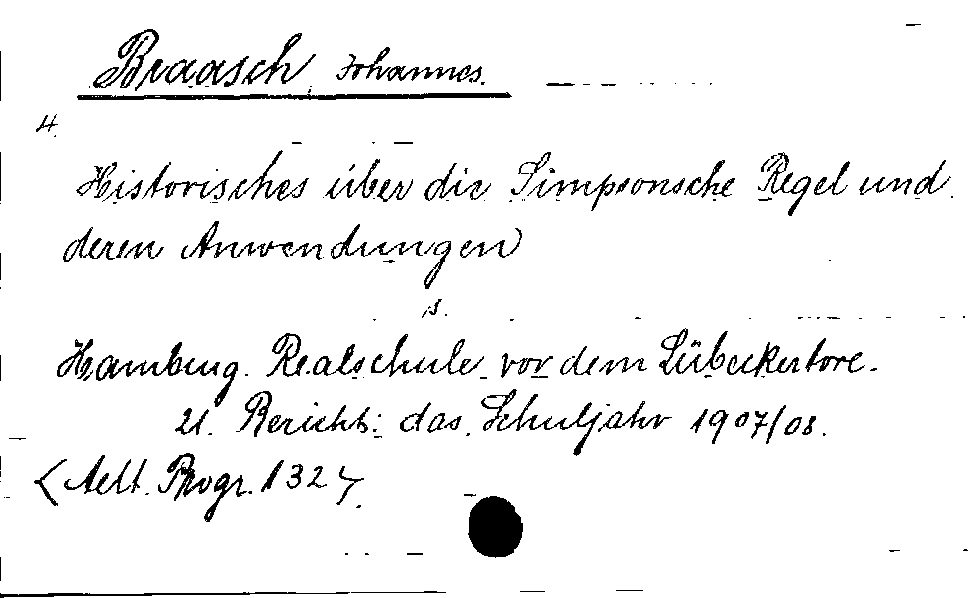 Braasch, Johannes.
4.
Historisches über die Simpsonsche Regel und
deren Anwendungen
s.
Hamburg. Realschule vor dem Lübeckertore.
21. Bericht: das Schuljahr 1907/08.
<Aelt. Progr. 132>